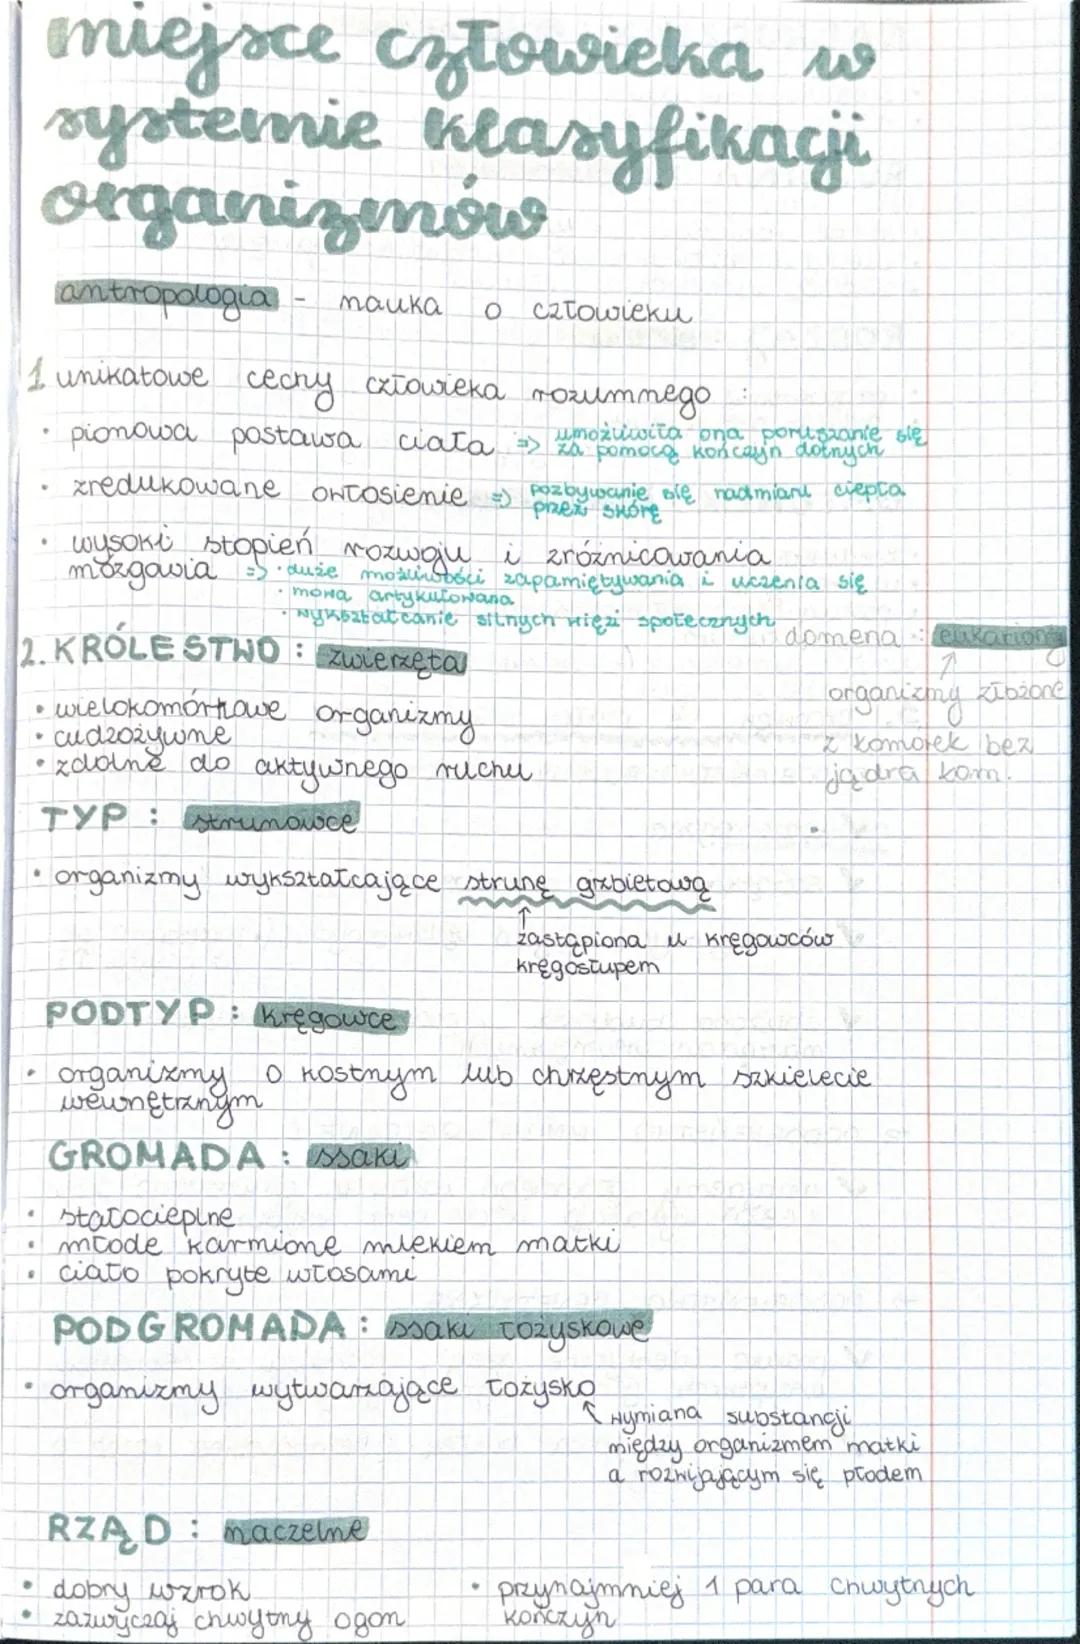 miejsce człowieka w
systemie klasyfikacji
organizmów
antropologia - nauka o człowieku
1 unikatowe cechy człowieka rozumnego :
• pionowa postawa ciała => umożliwiła ona poruszanie się
za pomocą kończyn dolnych
• zredukowane owłosienie => pozbywanie się nadmiaru ciepła
przez skórę
• wysoki stopień rozwoju i zróżnicowania
mózgowia => • duże możliwości zapamiętywania i uczenia się
• mowa artykułowana
• wykształcanie silnych więzi społecznych
domena : eukarionty
2. KRÓLESTWO : zwierzęta
organizmy złożone
z komórek bez
jądra kom.
• wielokomórkowe organizmy
• cudzożywne
• zdolne do aktywnego ruchu
TYP : strunowce
• organizmy wykształcające strunę grzbietową
zastąpiona u kręgowców
kręgosłupem
PODTYP : kręgowce
• organizmy o kostnym lub chrzęstnym szkielecie
wewnętrznym
GROMADA : ssaki
• stałocieplne
• młode karmione mlekiem matki
• ciało pokryte włosami
PODGROMADA : ssaki łożyskowe
• organizmy wytwarzające łożysko
wymiana substancji
między organizmem matki
a rozwijającym się płodem
RZĄD : naczelne
• dobry wzrok
• zazwyczaj chwytny ogon
• przynajmniej 1 para chwytnych
kończyn